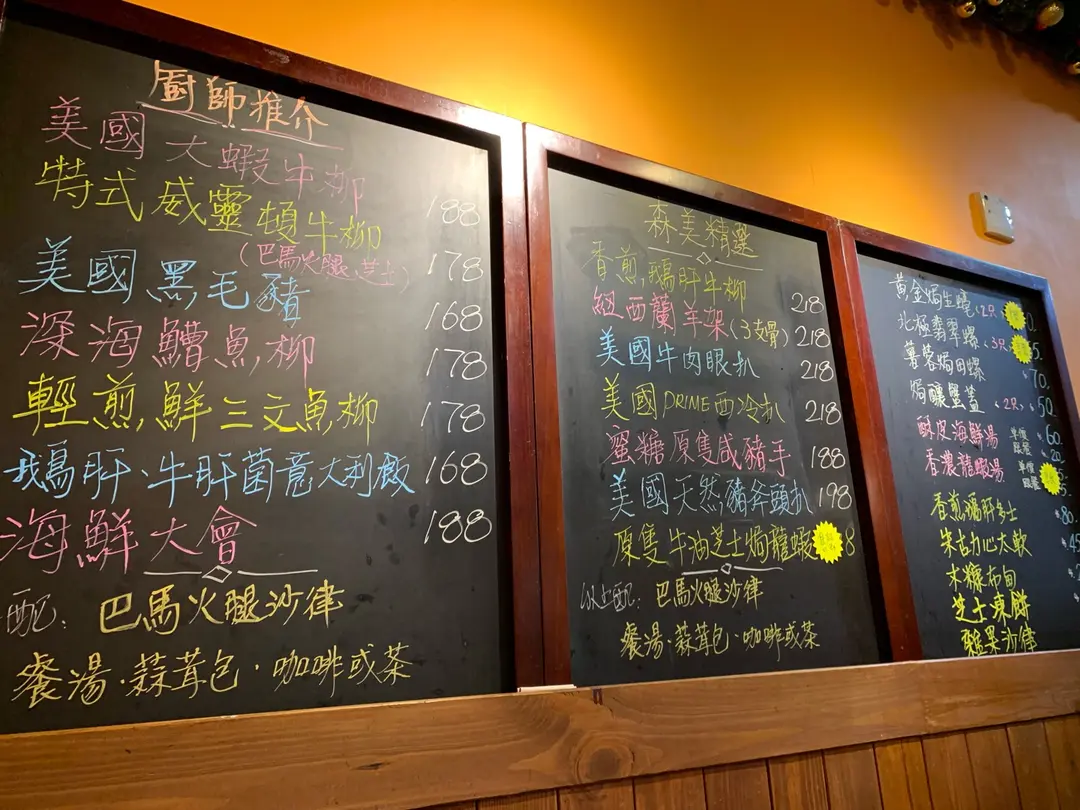 廚師推介
美國大蝦牛柳 188
特式威靈頓牛柳
(巴馬火腿、芝士) 178
美國黑毛豬 168
深海鱈魚柳 178
輕煎鮮三文魚柳 178
鵝肝·牛肝菌意大利飯 168
海鮮大會 188
配: 巴馬火腿沙律
餐湯·蒜茸包·咖啡或茶
森美精選
香煎鵝肝牛柳 218
紐西蘭羊架(3支骨) 218
美國牛肉眼扒 218
美國PRIME西冷扒 218
蜜糖原隻咸豬手 188
美國天然豬斧頭扒 198
原隻牛油芝士焗龍蝦 8
以上配: 巴馬火腿沙律
餐湯·蒜茸包·咖啡或茶
黃金焗生蠔(2只)
北極翡翠螺(3只) 5.
薯蓉焗田螺 70.
焗釀蟹蓋(2只) 50.
酥皮海鮮湯 單價 60.
跟餐 20.
香濃龍蝦湯 單價
跟餐
香煎鵝肝多士 80.
朱古力心太軟 45
木糠布甸
芝士凍餅
雜果沙律